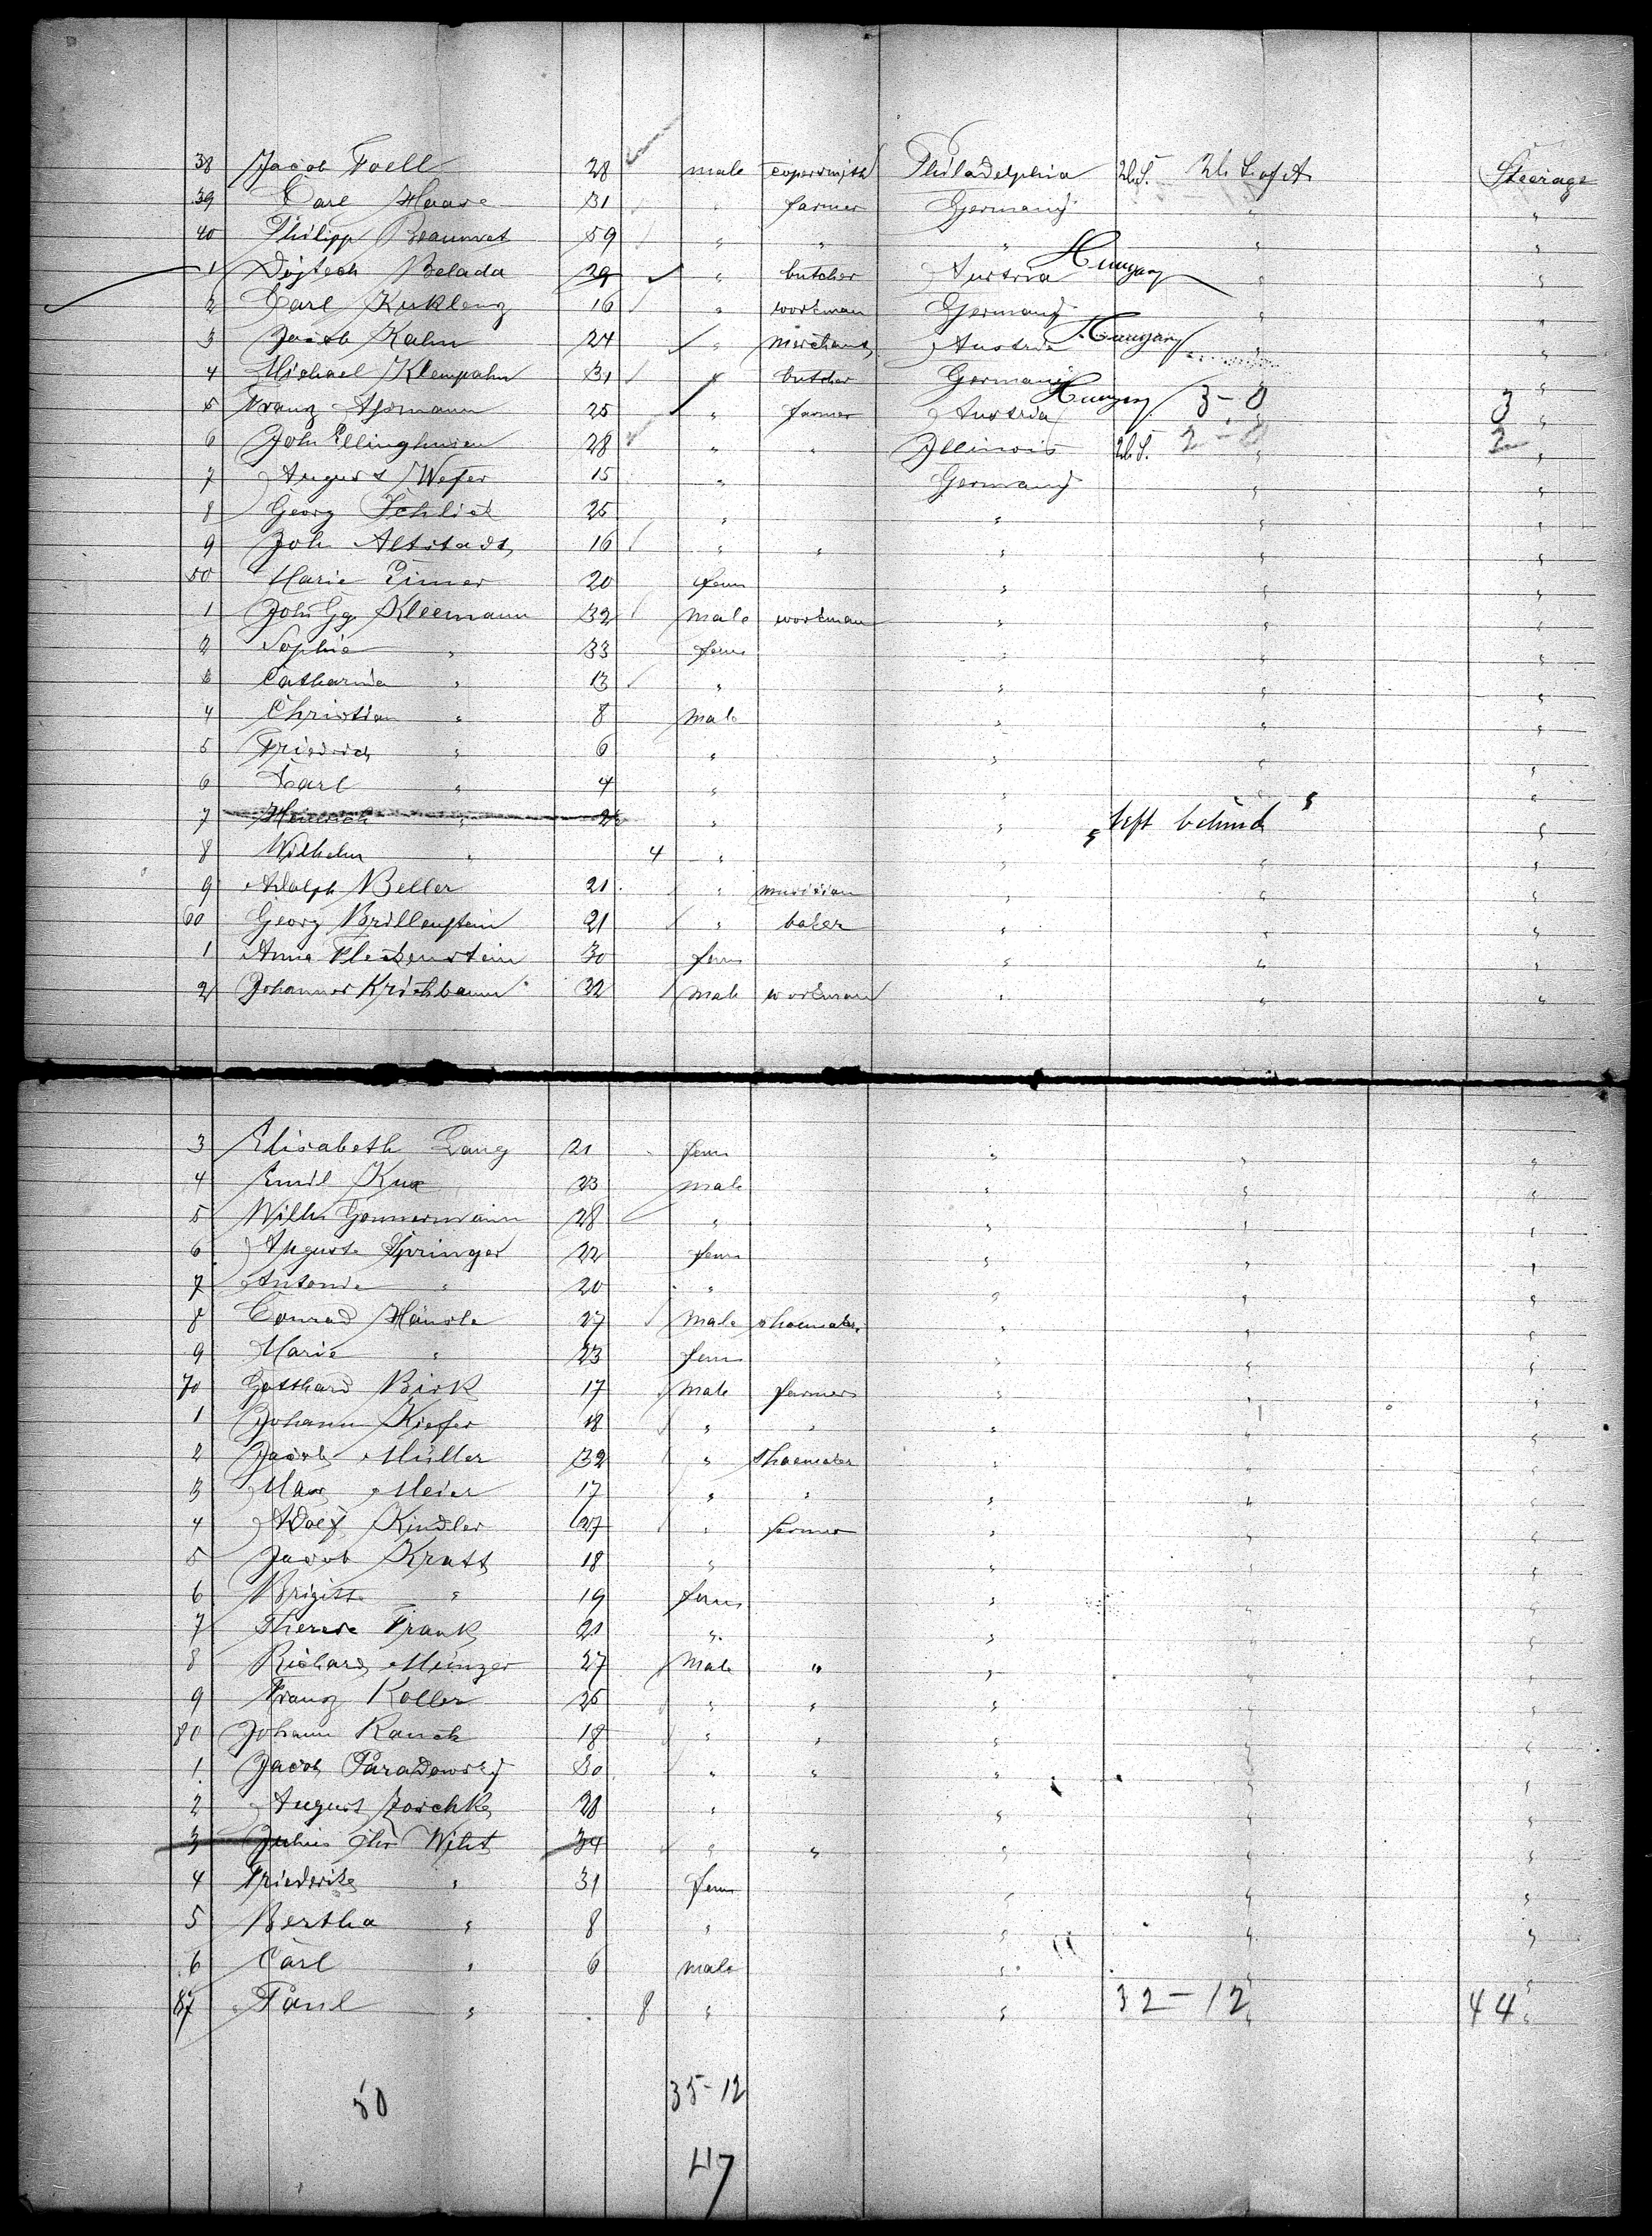 38 Jacob Foell 28 male copersmith Philadelphia U.S. U.S. of A. Steerage
39 Carl Haase 31 " farmer Germany " "
40 Philipp 59 " " " " "
1 Vojtech Belada 29 " butcher Austria Hungary " "
2 Carl 16 " workman Germany " "
3 Jacob Kahn 24 " merchant Austria Hungary " "
4 Michael Klempahn 31 " butcher Germany " "
5 Franz Assmann 25 " farmer Austria Hungary 3-0 " 3 "
6 Joh Ellinghusen 28 " " Illinois U.S. 2-0 " 2 "
7 August Wefer 15 " Germany " "
8 Georg 25 " " " "
9 Joh. Altstadt 16 " " " " "
50 Marie Eimer 20 fem " " "
1 Joh Gg. Kleemann 32 male workman " " "
2 Sophie " 33 fem " " "
3 Catharina " 13 " " " "
4 Christian " 8 male " " "
5 Friedrich " 6 " " " "
6 Carl " 4 " " " "
7 Heinrich " 2 " " " left behind " "
8 Wilhelm " 4 " " " "
9 Adolph Beller 21 " musician " " "
60 Georg Brillenstein 21 " baker " " "
1 Anna Fleckenstein 30 fem " " "
2 Johannes Krichbaum 32 male workman " " "
3 Elisabeth Lang 21 fem " " "
4 Emil Kux 23 male " " "
5 Wilh. Gonnermann 28 " " " "
6 Auguste Springer 22 fem " " "
7 Antonie " 20 " " " "
8 Conrad Häusle 27 male shoemaker " " "
9 Marie " 23 fem " " "
70 Gotthard Birk 17 male farmer " " "
1 Johann Kiefer 18 " " " " "
2 Jacob Müller 32 " shoemaker " " "
3 Max Meier 17 " " " " "
4 Adolf Kindler 27 " farmer " " "
5 Jacob Kratt 18 " " " "
6 Brigitte " 19 fem " " "
7 Therese Frank 21 " " " "
8 Richard Münzer 27 male " " " "
9 Franz Koller 25 " " " " "
80 Johann Rauch 18 " " " " "
1 Jacob Paradowsky 30 " " " " "
2 August Joschke 28 " " " "
3 Julius Wilst 34 " " " " "
4 Friederike " 31 fem " " "
5 Bertha " 8 " " " "
6 Carl " 6 male " " "
87 Paul " 8 " " 32-12 " 44 "
50 35-12
47